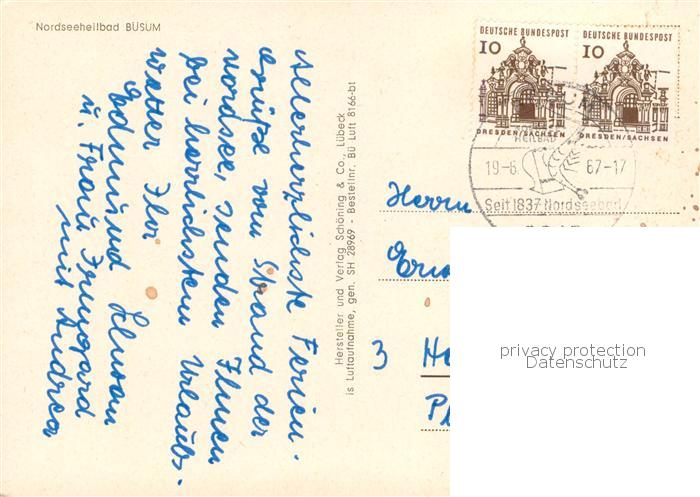 Nordseeheilbad BÜSUM
Allerherzlichste Ferien-
Grüße vom Strand der
Nordsee, senden Ihnen
bei herrlichstem Urlaubs-
wetter Ihr
Edmund
u. Frau Irmgard
mit Andrea
Hersteller und Verlag Schöning & Co., Lübeck
is Luftaufnahme, gen. SH 28969 - Bestellnr. Bü Luft 8166-b1
DEUTSCHE BUNDESPOST
10
DRESDEN/SACHSEN
DEUTSCHE BUNDESPOST
10
DRESDEN/SACHSEN
HEILBAD
19-6 67-17
Seit 1837 Nordseebad
Herrn
3
privacy protection
Datenschutz